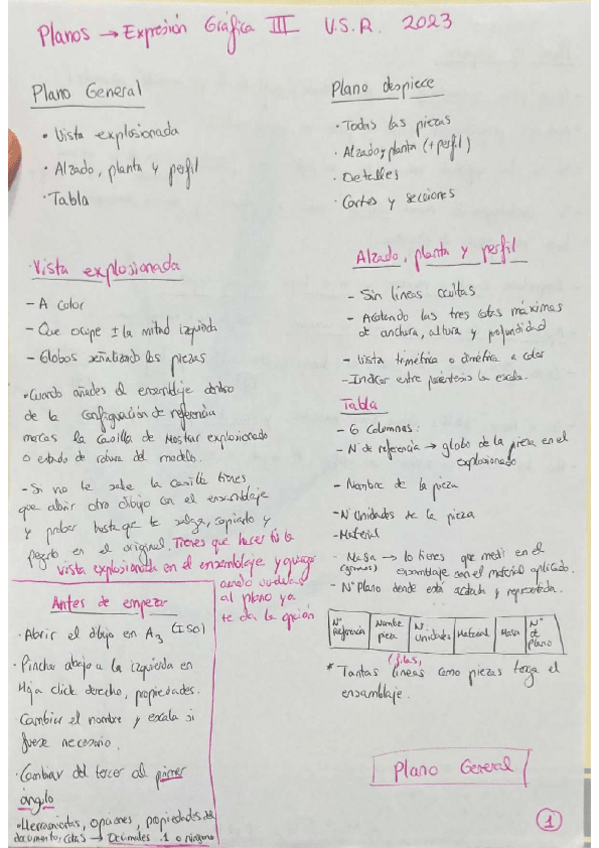 Planos → Expresión Gráfica III U.S.R. 2023
Plano General
• Vista explosionada
• Alzado, planta y perfil
• Tabla
Plano despiece
• Todas las piezas
• Alzado y planta (+ perfil)
• Detalles
• Cortes y secciones
Vista explosionada
- A color
- Que ocupe ± la mitad izquierda
- Globos señalizando las piezas
• Cuando añades el ensamblaje debajo
de la configuración de referencia
marcas la casilla de Mostar explosionado
o estado de rotura del modelo.
- Si no te sale la casilla tienes
que abrir otro dibujo con el ensamblaje
y probar hasta que te salga, copiarlo y
pegarlo en el original. Tienes que hacer tú la
vista explosionada en el ensamblaje y
cuando vuelvas
al plano ya
te da la opción
Alzado, planta y perfil
- Sin líneas ocultas
- Acotando las tres cotas máximas
de anchura, altura y profundidad
- Vista trimétrica o dimétrica a color
- Indicar entre paréntesis la escala.
Tabla
- 6 columnas:
- Nº de referencia → globo de la pieza en el
explosionado
- Nombre de la pieza
- Nº Unidades de la pieza
- Material
- Masa → lo tienes que medir en el
(gramos) ensamblaje con el material aplicado.
- Nº Plano donde está acotada y representada.
Nº Referencia | Nombre pieza | Nº Unidades | Material | Masa | Nº de plano
(filas)
* Tantas líneas como piezas tenga el
ensamblaje.
Antes de empezar
• Abrir el dibujo en A3 (ISO)
• Pincho abajo a la izquierda en
Hoja click derecho, propiedades.
Cambiar el nombre y escala si
fuese necesario.
• Cambiar del tercer al primer
ángulo
• Herramientas, opciones, propiedades de
documento, cotas → Decimales .1 o ninguno
Plano General
1